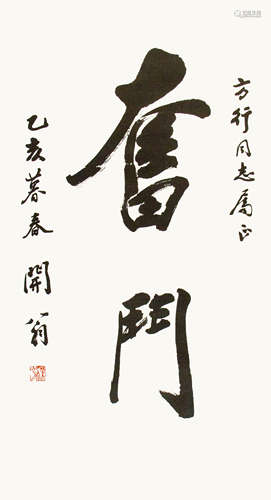 方行同志属正
奮鬥
乙亥暮春 開翁